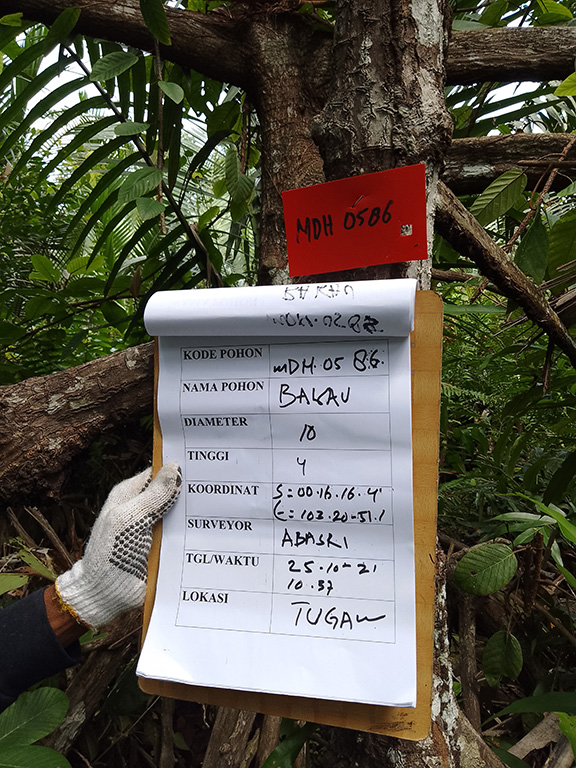 MDH 0586
KODE POHON mDH.05 86.
NAMA POHON BAKAU
DIAMETER 10
TINGGI 4
KOORDINAT S=00.16.16.4'
E=103.20-51.1
SURVEYOR ABASRI
TGL/WAKTU 25-10-21
10.37
LOKASI TUGAU